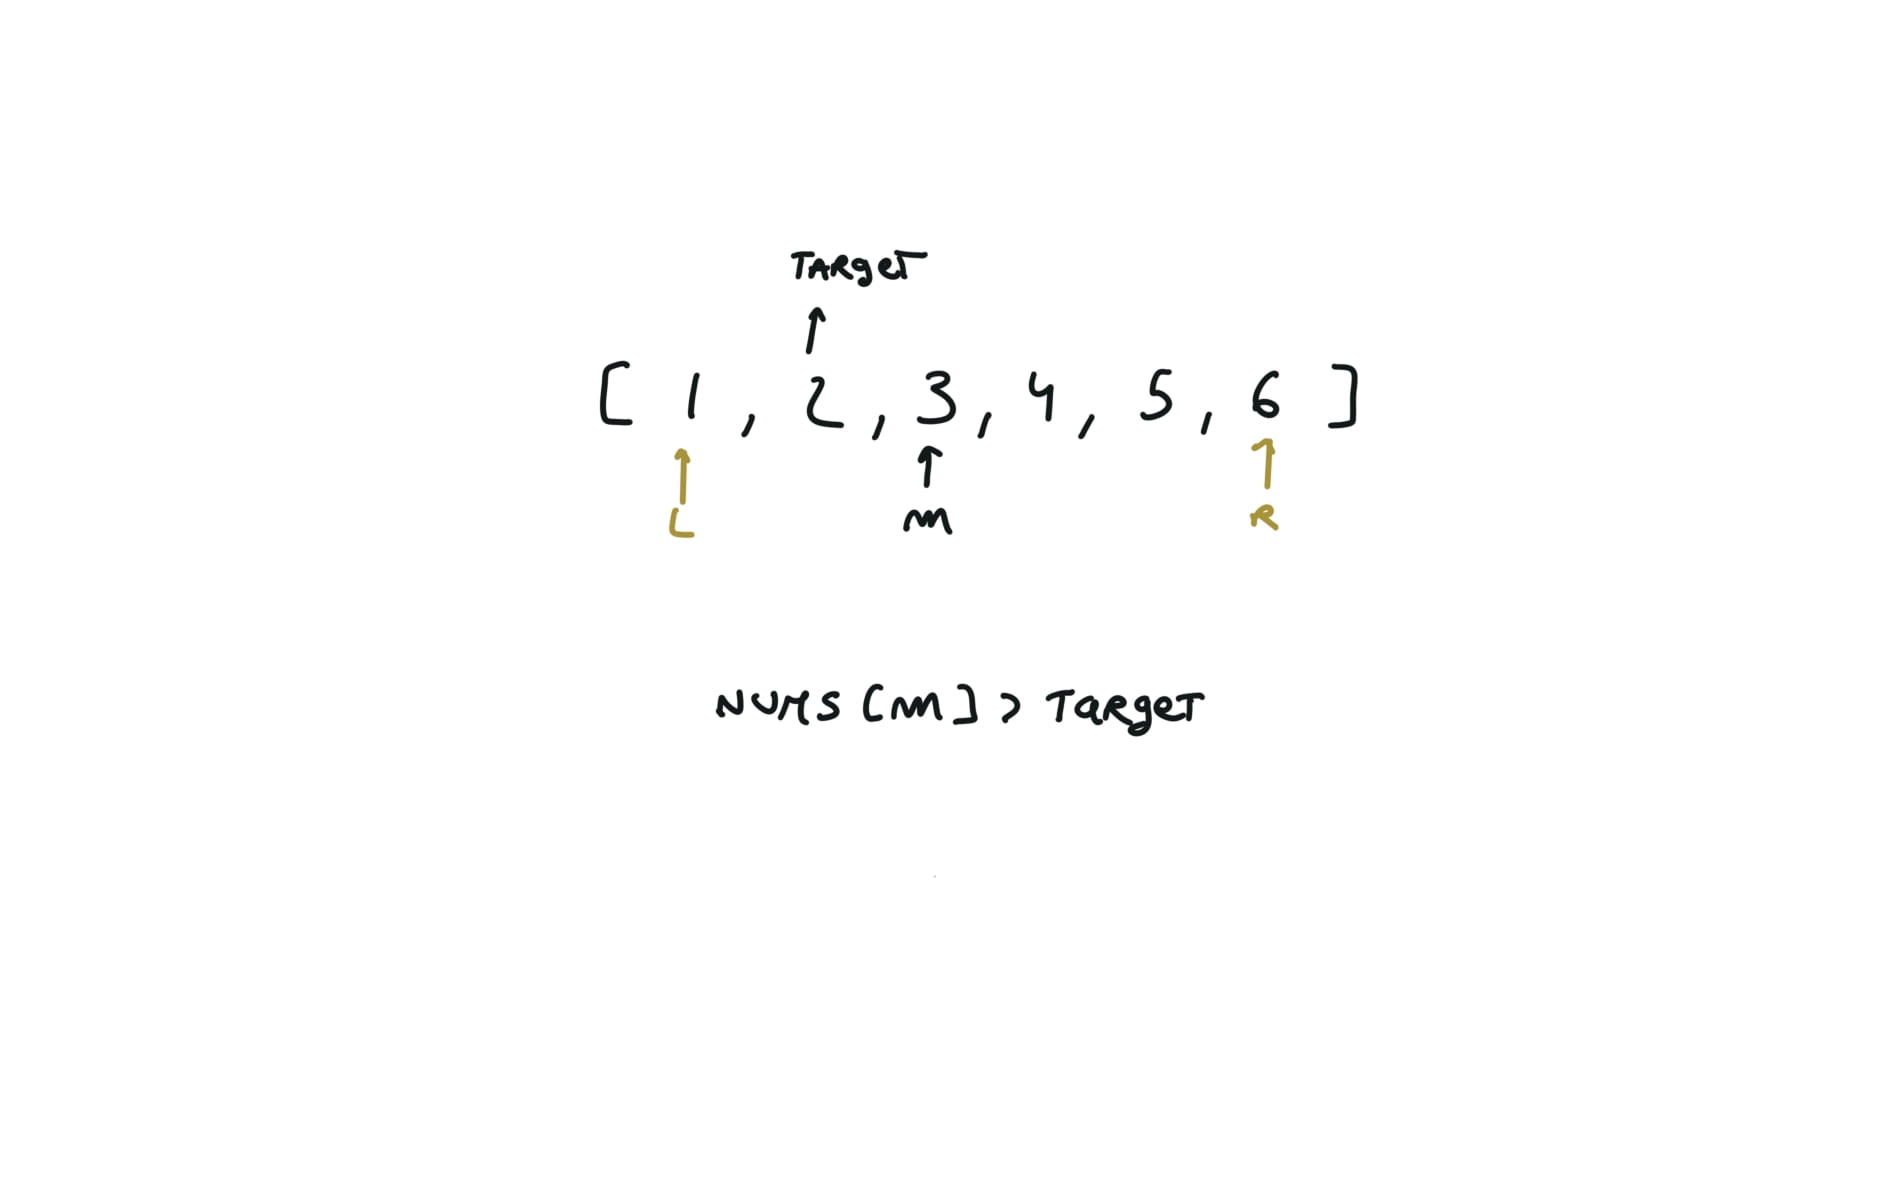 TARgeT
[ 1 , 2 , 3 , 4 , 5 , 6 ]
L m R
NUMS [m] > TaRgeT